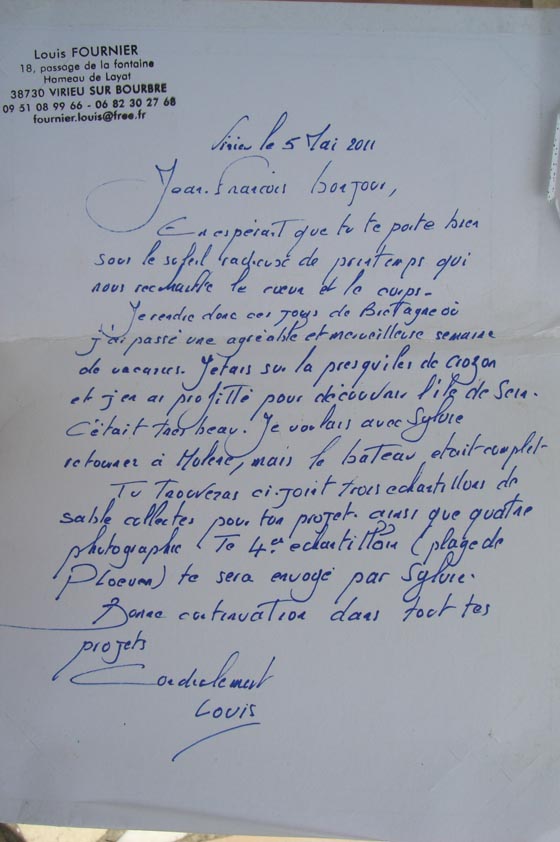 Louis FOURNIER
18, passage de la fontaine
Hameau de Layat
38730 VIRIEU SUR BOURBRE
09 51 08 99 66 - 06 82 30 27 68
fournier.louis@free.fr
Virieu le 5 Mai 2011
Jean-François bonjour,
En espérant que tu te porte bien
sous le soleil radieuse de printemps qui
nous rechauffe le cœur et le corps.
donc ces jours de Bretagne où
j'ai passé une agréable et merveilleuse semaine
de vacances. J'etais sur la presqu'iles de Crozon
et j'en ai profitté pour découvrir l'ile de Sein.
C'était tres beau. Je voulais avec Sylvie
retourner à Molene, mais le bateau etait complet.
Tu trouveras ci-joint trois echantillons de
sable collectes pour ton projet ainsi que quatre
photographie. Te 4er echantillon (plage de
Ploeven) te sera envoyé par Sylvie.
Bonne continuation dans tout tes
projets
Cordialement
Louis